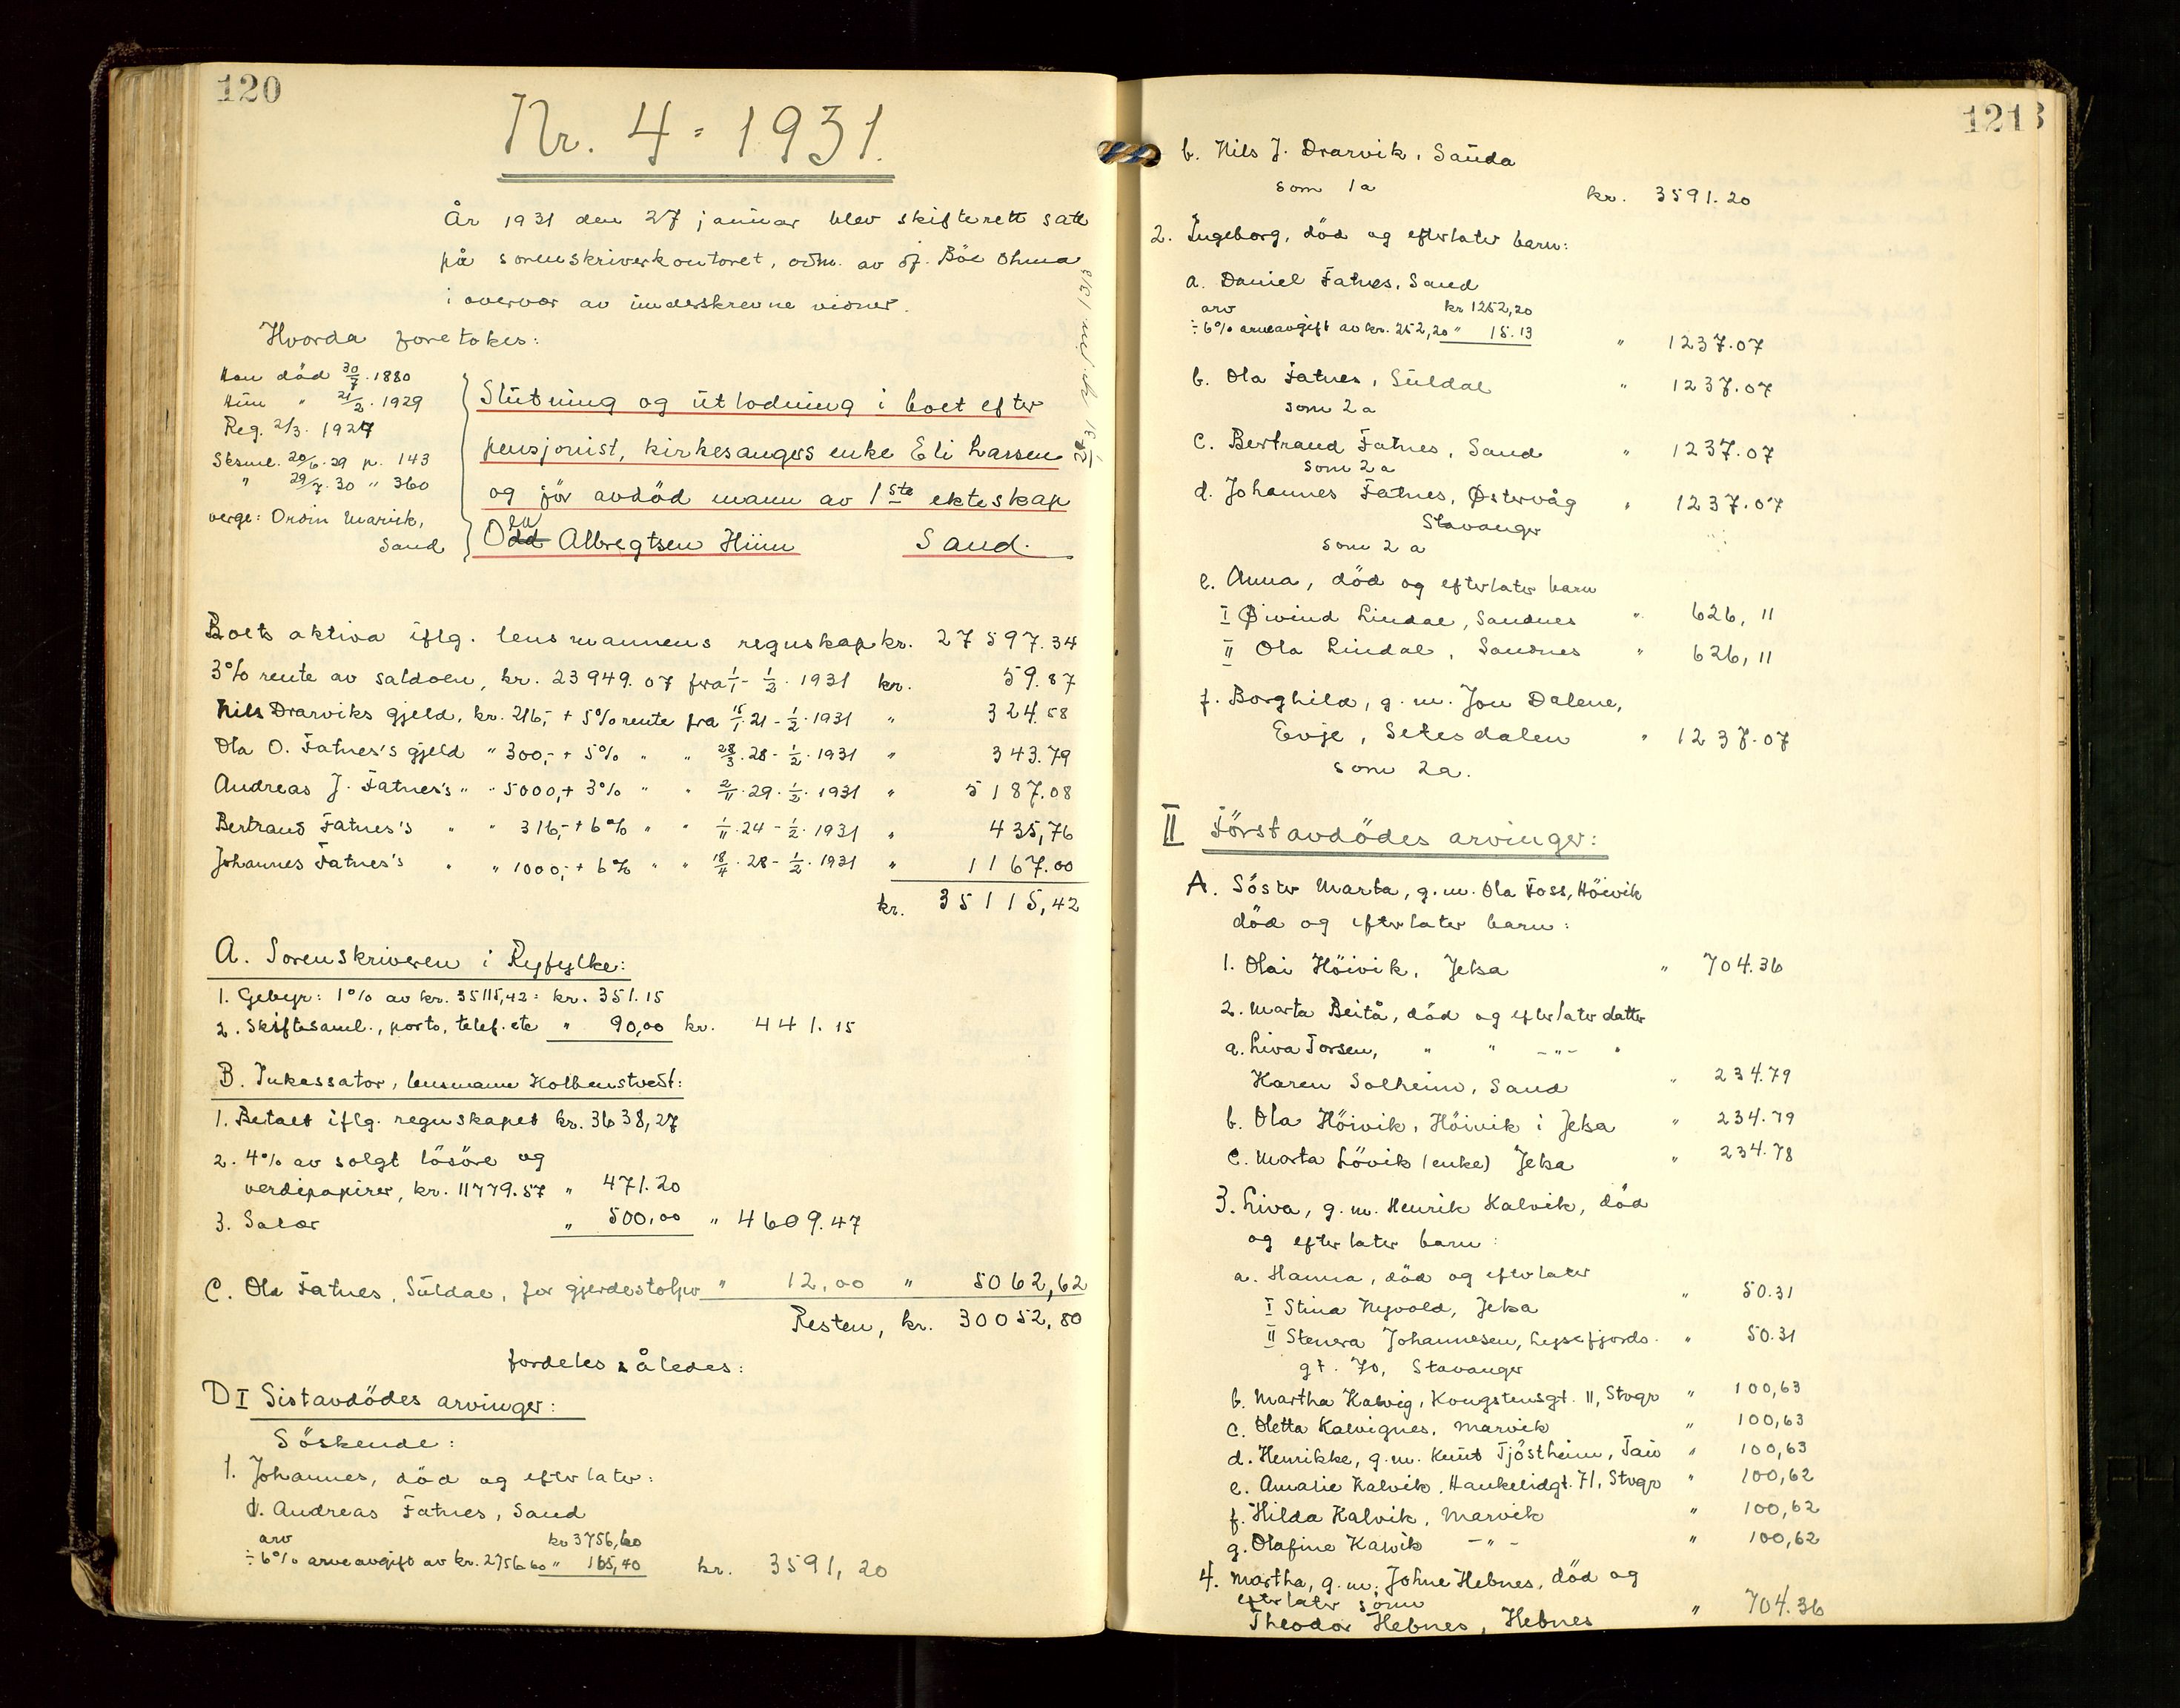 120
Nr. 4 - 1931.
År 1931 den 27 januar blev skifterett satt
på sorenskriverkontoret, adm. av sf. Böe Ohma
i overvær av underskrevne vidner.
Hvorda foretokes:
Han död 30/7. 1880
Hun " 21/2. 1929
Reg. 2/3. 1929
Sksml. 20/6. 29 p. 143
" 29/7. 30 " 360
verge: Ordin Marvik,
Sand
Slutning og utlodning i boet efter
pensjonist, kirkesangers enke Eli Larsen
og för avdöd mann av 1ste ekteskap
Ola Albregtsen Hüm Sand.
Boets aktiva iflg. lensmannens regnskap kr. 27597.34
3% rente av saldoen, kr. 23949.07 fra 1/1 - 1/2. 1931 kr. 59.87
Nils Drarviks gjeld, kr. 216,- + 5% rente fra 15/1. 21 - 1/2. 1931 " 324.58
Ola O. Fatnes's gjeld " 300,- + 5% " " 28/3. 28 - 1/2. 1931 " 343.79
Andreas J. Fatnes's " " 5000,+ 3% " " 2/11. 29. 1/2. 1931 " 5187.08
Bertrand Fatnes's " " 316,- + 6% " " 1/11. 24 - 1/2. 1931 " 435,76
Johannes Fatnes's " " 1000,- + 6% " " 18/4. 28 - 1/2. 1931 " 1167.00
kr. 35115,42
A. Sorenskriveren i Ryfylke:
1. Gebyr: 1% av kr. 35115,42 = kr. 351.15
2. Skiftesaml., porto, telef. etc " 90,00 kr. 441.15
B. Inkassator, lensmann Kolbenstvedt:
1. Betalt iflg. regnskapet kr. 3638,27
2. 4% av solgt lösöre og
verdipapirer, kr. 11779.57 " 471.20
3. Salær " 500,00 " 4609.47
C. Ola Fatnes, Suldal, for gjerdestolper " 12,00 " 5062,62
Resten, kr. 30052,80
fordeles således:
D I Sistavdödes arvinger:
Söskende:
1. Johannes, död og efterlater:
a. Andreas Fatnes, Sand
arv kr 3756,60
÷ 6% arveavgift av kr. 2756.60 " 165,40 kr. 3591,20
121
b. Nils J. Drarvik, Sauda
som 1a kr. 3591.20
2. Ingeborg, död og efterlater barn:
a. Daniel Fatnes, Sand
arv kr 1252,20
÷ 6% arveavgift av kr. 252,20 " 15.13 " 1237.07
b. Ola Fatnes, Suldal " 1237.07
som 2a
c. Bertrand Fatnes, Sand " 1237.07
som 2a
d. Johannes Fatnes, Østervåg " 1237.07
Stavanger
som 2a
e. Anna, död og efterlater barn
I Øivind Lindal, Sandnes " 626,11
II Ola Lindal, Sandnes " 626,11
f. Borghild, g.m. Jon Dalene,
Evje, Setesdalen " 1237.07
som 2a.
II Förstavdödes arvinger:
A. Söster Marta, g.m. Ola Foss, Höivik
död og efterlater barn:
1. Olai Höivik, Jelsa " 704.36
2. Marta Beitå, död og efterlater datter
a. Liva Torsen, " " -"- "
Karen Solheim, Sand " 234.79
b. Ola Höivik, Höivik i Jelsa " 234.79
c. Marta Lövik (enke) Jelsa " 234.78
3. Liva, g.m. Henrik Kalvik, död
og efterlater barn:
a. Hanna, död og efterlater
I Stina Nyvold, Jelsa " 50.31
II Stenera Johannesen, Lysefjords- " 50.31
gt. 70, Stavanger
b. Martha Kalvig, Kongstensgt. 11, Stvgr " 100,63
c. Oletta Kalvignes, Marvik " 100,63
d. Henrikke, g.m. Knut Tjöstheim, Tau " 100,63
e. Amalie Kalvik, Haukelidgt. 71, Stvgr " 100,62
f. Hilda Kalvik, Marvik " 100,62
g. Olafine Kalvik -"- " 100,62
4. Martha, g.m. Johne Hebnes, död og
efterlater sönn
Theodor Hebnes, Hebnes " 704.36